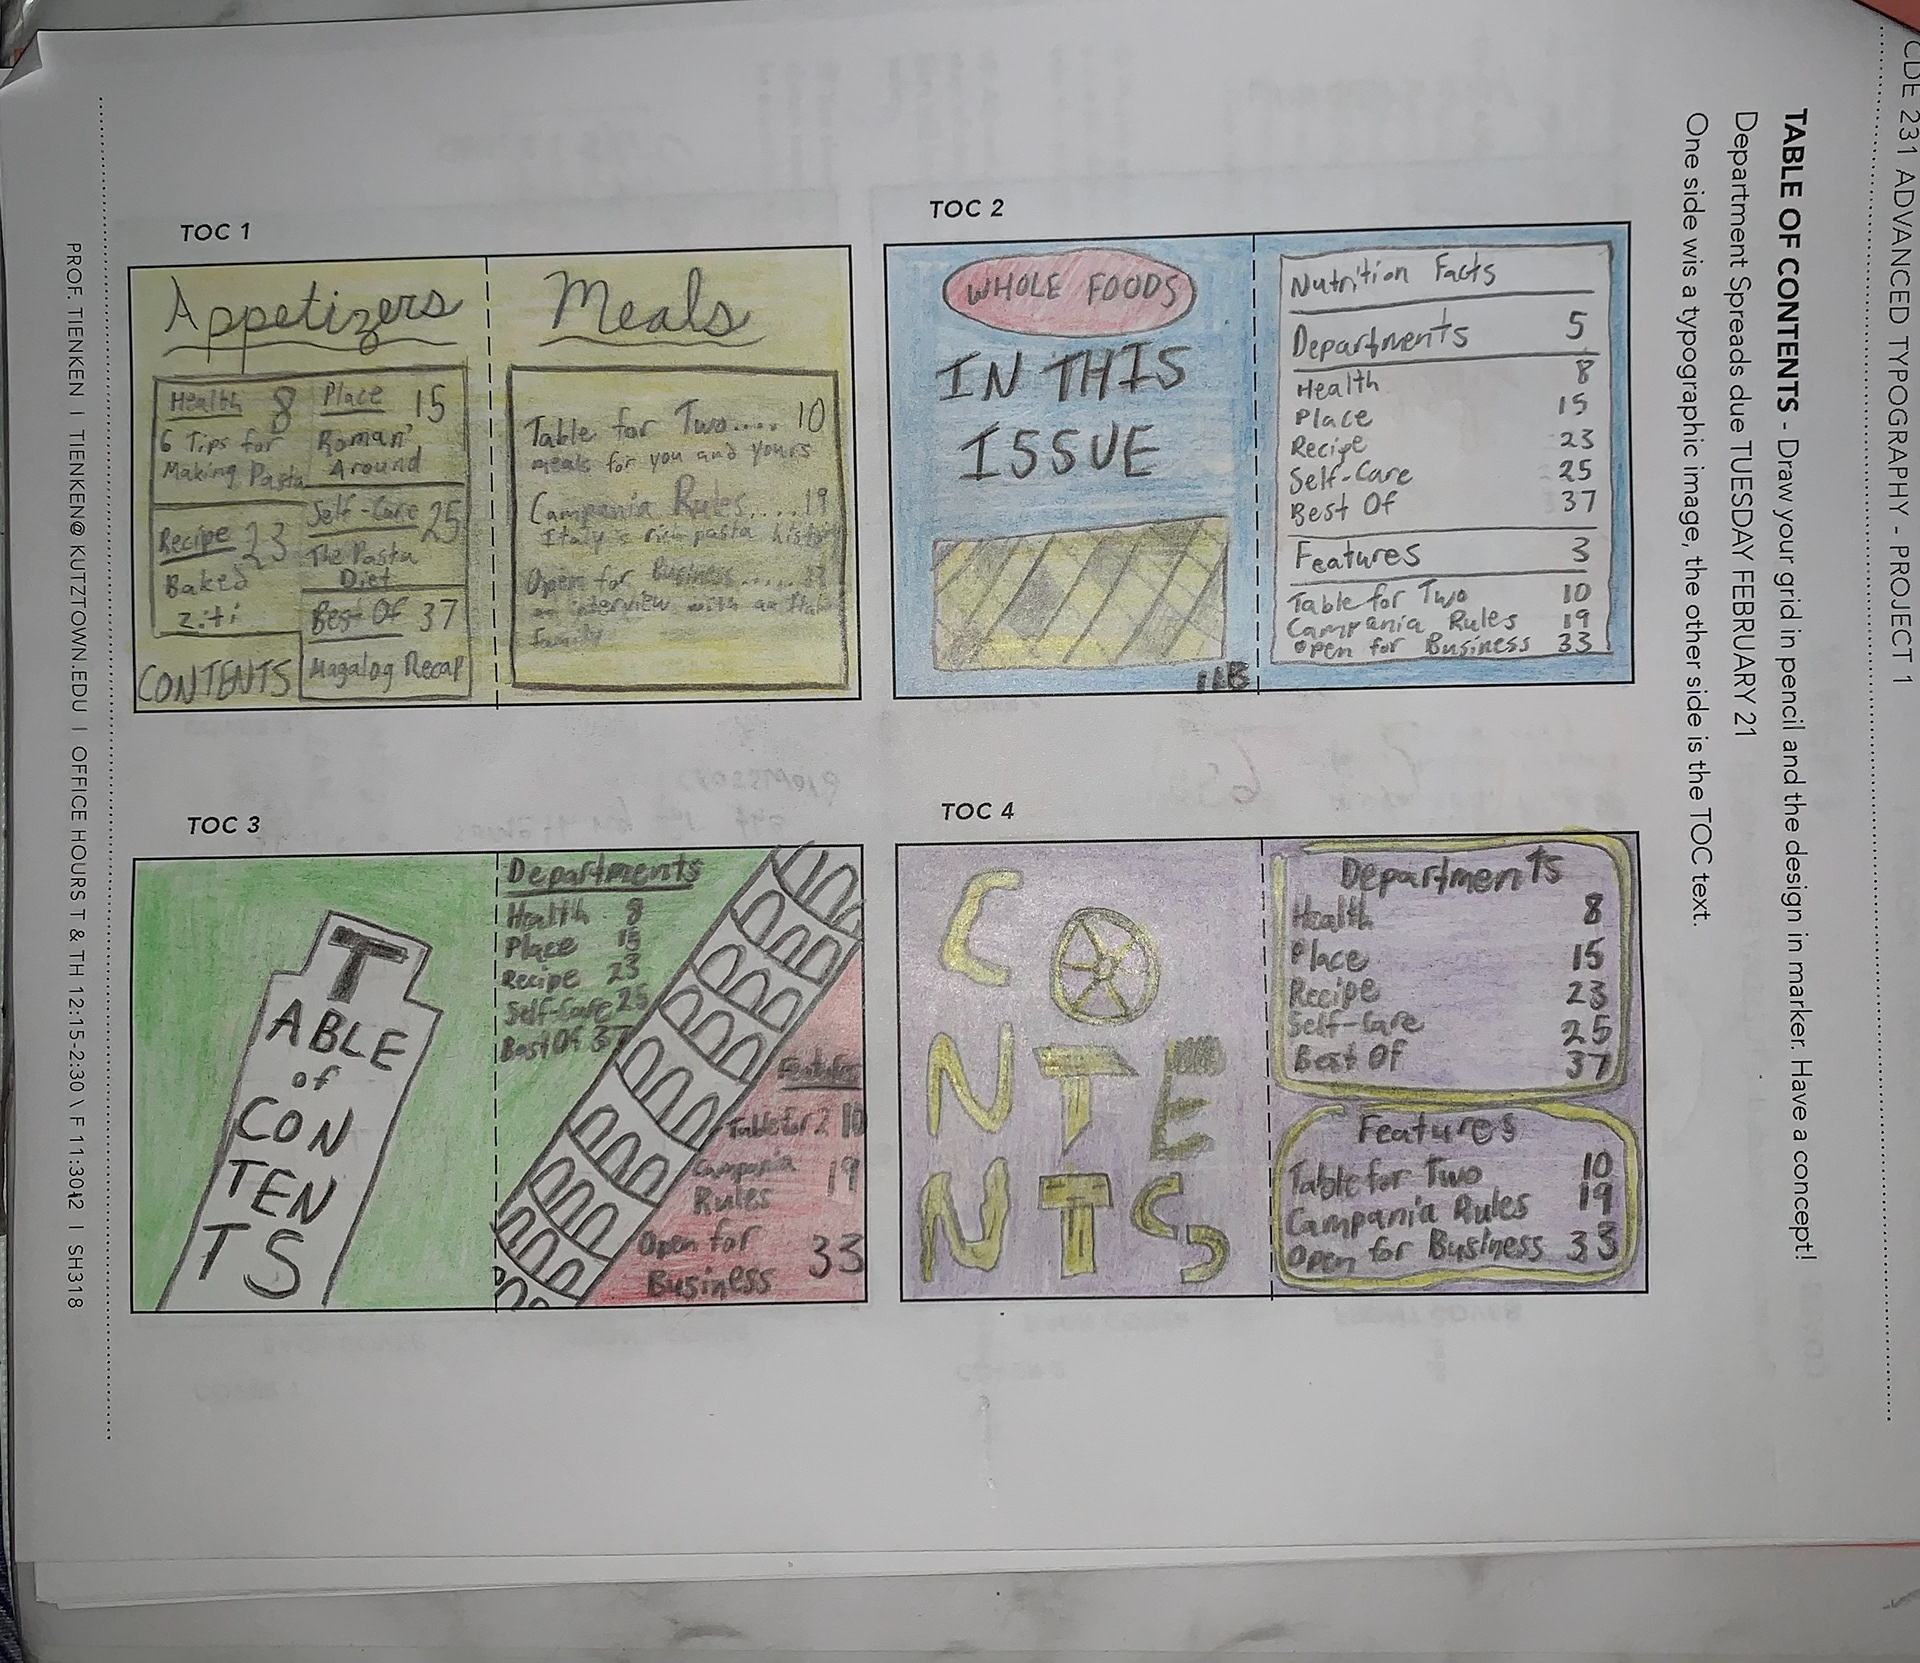 CDE 231 ADVANCED TYPOGRAPHY - PROJECT 1
TABLE OF CONTENTS - Draw your grid in pencil and the design in marker. Have a concept!
Department Spreads due TUESDAY FEBRUARY 21
One side wis a typographic image, the other side is the TOC text.
TOC 1
Appetizers
Health 8
6 Tips for
Making Pasta
Place 15
Roman'
Around
Recipe 23
Baked
ziti
Self-Care 25
The Pasta
Diet
Best Of 37
Magalog Recap
CONTENTS
Meals
Table for Two.... 10
meals for you and yours
Campania Rules.....19
Italy's rich pasta history
Open for Business......33
an interview with an Italian
family
TOC 2
WHOLE FOODS
IN THIS
ISSUE
1LB
Nutrition Facts
Departments 5
Health 8
Place 15
Recipe 23
Self-Care 25
Best Of 37
Features 3
Table for Two 10
Campania Rules 19
Open for Business 33
TOC 3
T
ABLE
of
CON
TEN
TS
Departments
Health 8
Place 15
Recipe 23
Self-Care 25
Best Of 37
Features
Table for 2 10
Campania
Rules 19
Open for
Business 33
TOC 4
C
O
N T E
N T S
Departments
Health 8
Place 15
Recipe 23
Self-Care 25
Best Of 37
Features
Table for Two 10
Campania Rules 19
Open for Business 33
PROF. TIENKEN | TIENKEN@KUTZTOWN.EDU | OFFICE HOURS T & TH 12:15-2:30 \ F 11:30-12 | SH318